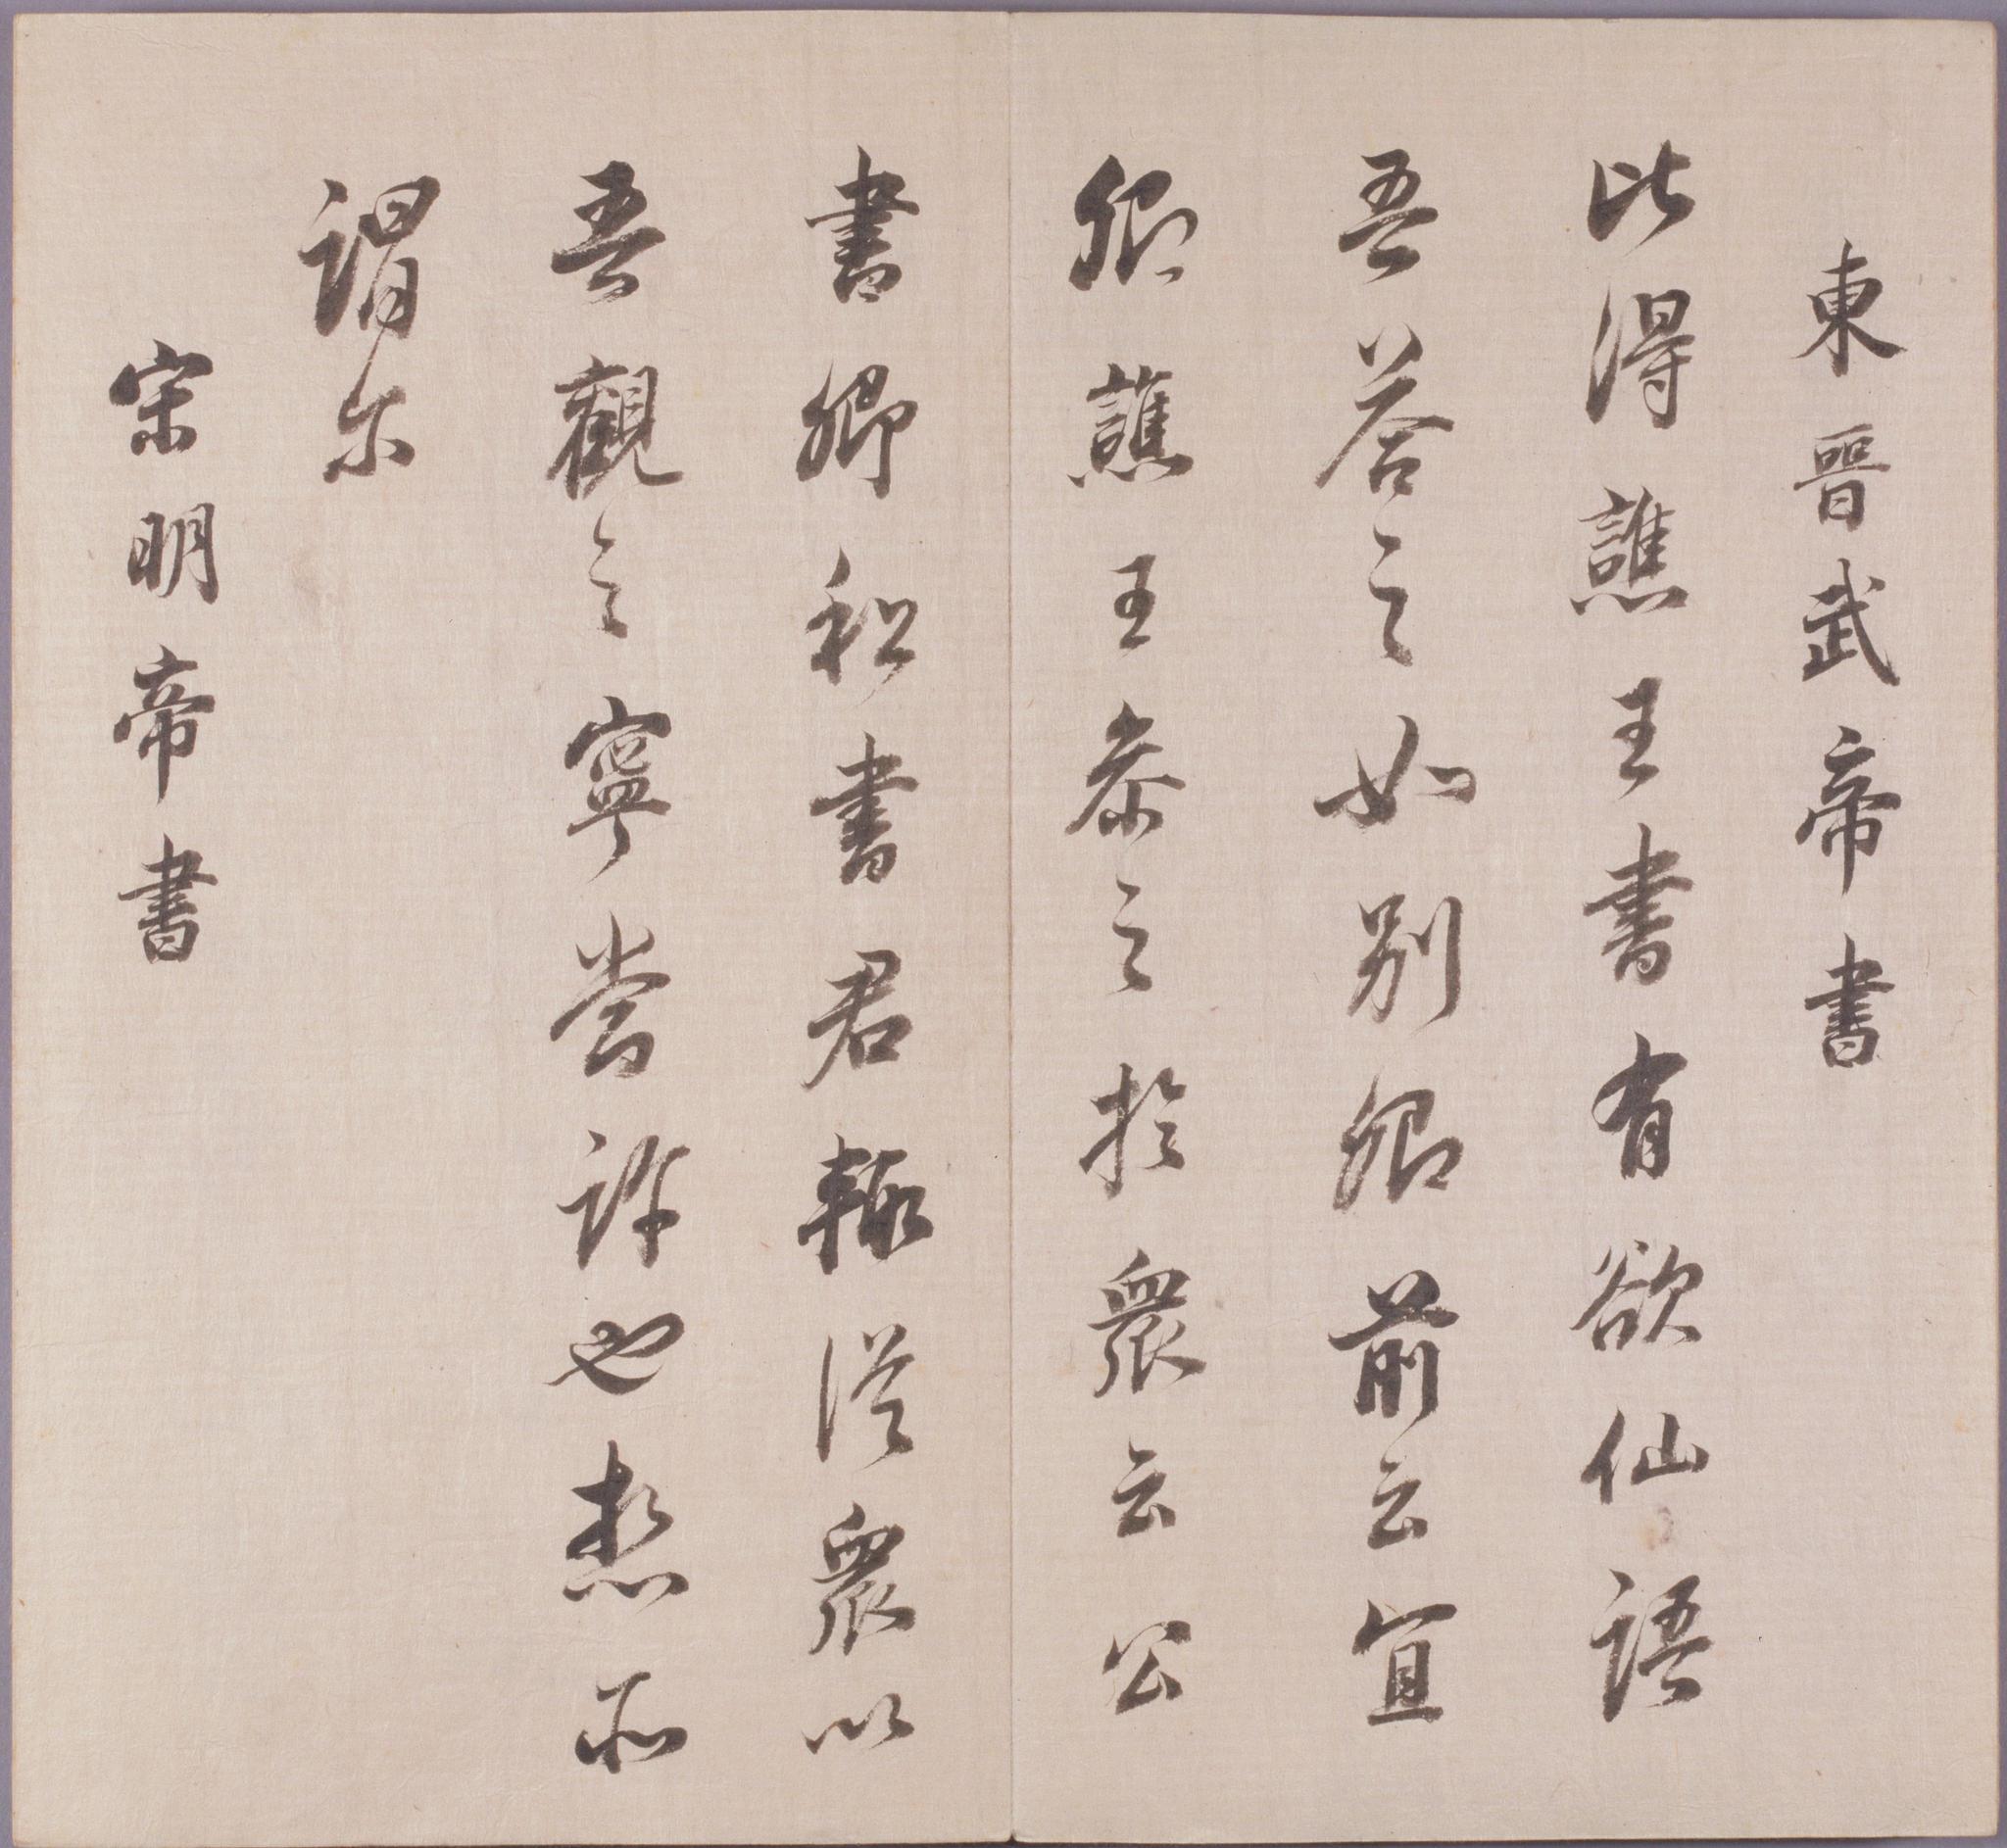 東晉武帝書
比得譙王書有欲仙語
吾荅之如別卿前云宜
卿譙王恭之於衆云公
書卿和書君輙從衆以
吾觀之寧嘗許也想所
謂尔
宋明帝書